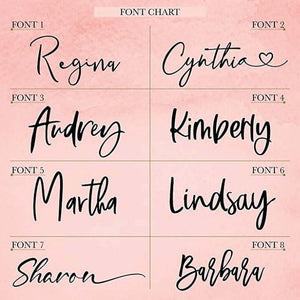 FONT CHART
FONT 1
Regina
FONT 2
Cynthia
FONT 3
Audrey
FONT 4
Kimberly
FONT 5
Martha
FONT 6
Lindsay
FONT 7
Sharon
FONT 8
Barbara